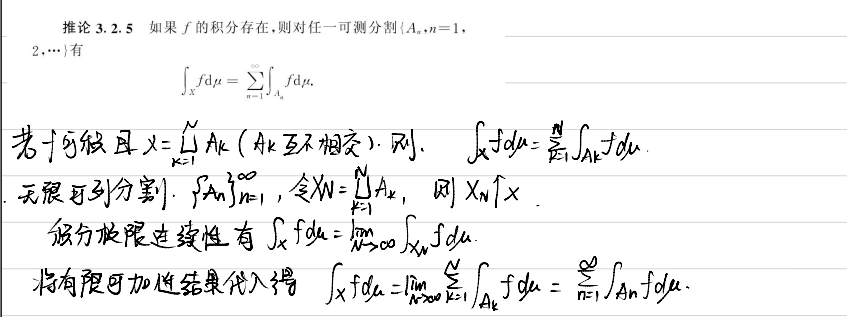 推论 3.2.5 如果 f 的积分存在,则对任一可测分割{Aₙ,n=1,
2,…}有
∫_X fdμ = ∑_{n=1}^{∞} ∫_{Aₙ} fdμ.
若f可积且 X=⨆_{k=1}^{N} A_k (A_k 互不相交). 则. ∫_X fdμ = ∑_{k=1}^{N} ∫_{A_k} fdμ.
无限可列分割. {Aₙ}_{n=1}^{∞}, 令X_N=⨆_{k=1}^{N} A_k, 则 X_N↑X.
积分极限连续性有 ∫_X fdμ = lim_{N→∞} ∫_{X_N} fdμ.
将有限可加性结果代入得 ∫_X fdμ = lim_{N→∞} ∑_{k=1}^{N} ∫_{A_k} fdμ = ∑_{n=1}^{∞} ∫_{Aₙ} fdμ.